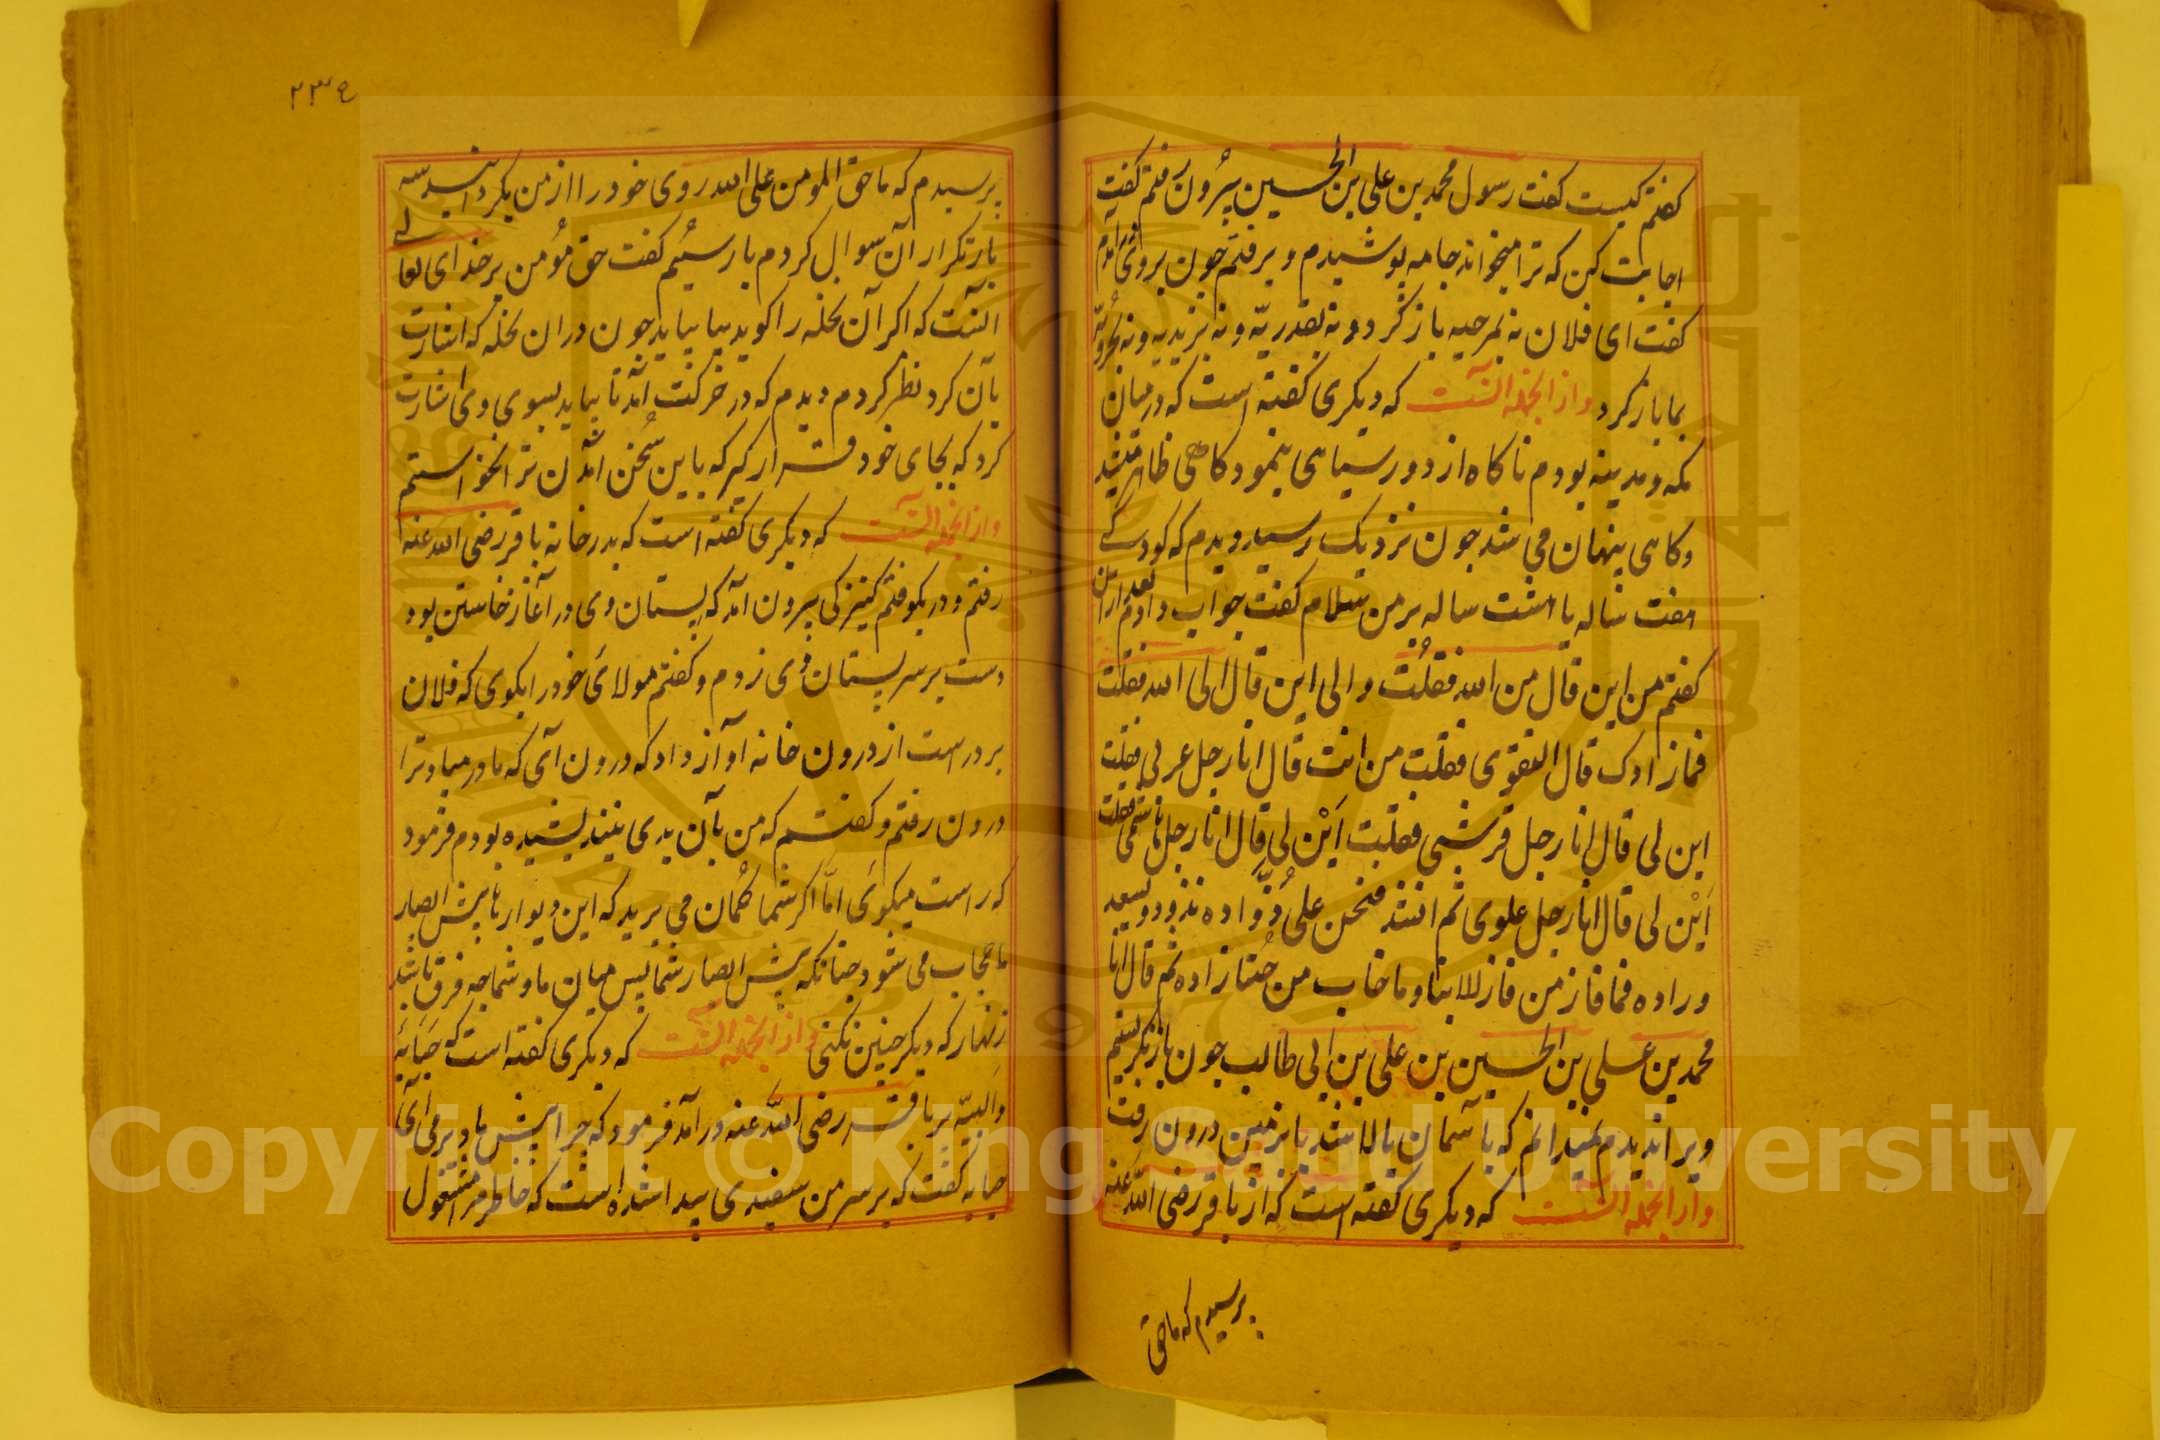 گفتم کیست گفت رسول محمد بن علی بن الحسین بیرون رفتم گفت
اجابت کن که ترا میخواند جامه پوشیدم و برفتم چون بروی آمدم
گفت ای فلان نه بمرجیه باز گرد و نه بقدریه و نه بزیدیه و نه بحروریه
بما باز گرد و از آنجمله آنست که دیگری گفته است که در میان
مکه و مدینه بودم ناکاه از دور سیاهی بنمود کاهی ظاهر میشد
و کاهی پنهان می شد چون نزدیک رسید دیدم که کودکی
هفت ساله یا هشت ساله بر من سلام گفت جواب دادم بعد ازان
گفتم من این قال من الله فقلت و الی این قال الی الله فقلت
فما زادک قال التقوی فقلت من انت قال انا رجل عربی فقلت
ابن لی قال انا رجل قرشی فقلت اَبْن لی قال انا رجل هاشمی فقلت
اَبْن لی قال انا رجل علوی ثم انشد فنحن علی ذُوّاده نذود و یسعد
وراده فما فاز من فاز الا بنا و ما خاب من حبنا زاده ثم قال انا
محمد بن علی بن الحسین بن علی بن ابی طالب چون باز نگریستم
ویرا ندیدم نمیدانم که بآسمان بالا شد یا بزمین درون رفت
و از آنجمله آنست که دیگری گفته است که از باقر رضی الله عنه
پرسیدم که ما حق
۲۳۹
پرسیدم که ما حق المومن علی الله روی خود را از من بگردانید سه
بار تکرار آن سوال کردم بار سیُم گفت حق مؤمن بر خدای تعالی
آنست که اکر آن نخله را کوید بیا بیاید چون دران نخله که اشارت
بآن کرد نظر کردم دیدم که در حرکت آمد تا بیاید بسوی وی اشارت
کرد که بجای خود قرار گیر که باین سخن آمدن ترا نخواستم
و از آنجمله آنست که دیگری گفته است که بدر خانه باقر رضی الله عنه
رفتم و در بکوفتم کنیزکی بیرون آمد که پستان وی در آغاز خاستن بود
دست بر سر پستان وی زدم و گفتم مولای خود را بگوی که فلان
بر در است از درون خانه آواز داد که درون آی که مادر مباد ترا
درون رفتم و گفتم که من بآن بدی نیندیشیده بودم فرمود
که راست میگوئی امّا اکر شما گمان می برید که این دیوارها پیش ابصار
ما حجاب می شود چنانکه پیش ابصار شما پس میان ما و شما چه فرق باشد
زنهار که دیگر چنین نکنی و از آنجمله آنست که دیگری گفته است که حبابه
والبیّه بر باقر رضی الله عنه در آمد فرمود که چرا پیش ما دیر می آئی
حبابه گفت که بر سر من سفیدی پیدا شده است که خاطر مرا مشغول